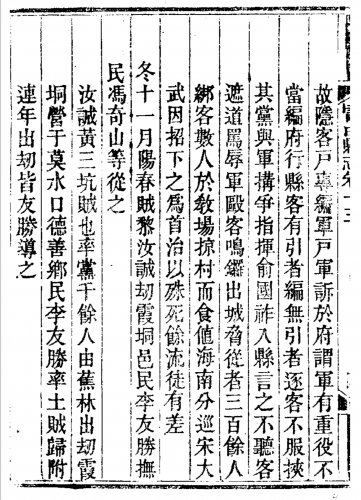 縣志卷十三
故隱客戶專編軍戶軍訴於府謂軍有重役不
當編府行縣客有引者編無引者逐客不服挾
其黨與軍搆爭指揮俞國祚入縣言之不聽客
遮道罵辱軍毆客鳴鑼出城脅從者三百餘人
綁客數人於敎場掠村而食值海南分巡宋大
武因招下之為首治以殊死餘流徒有差
冬十一月陽春賊黎汝誠刼霞垌邑民李友勝撫
民馮奇山等從之
汝誠黃三坑賊也率黨千餘人由蕉林出刼霞
垌營于莫水口德善鄉民李友勝率土賊歸附
連年出刼皆友勝導之